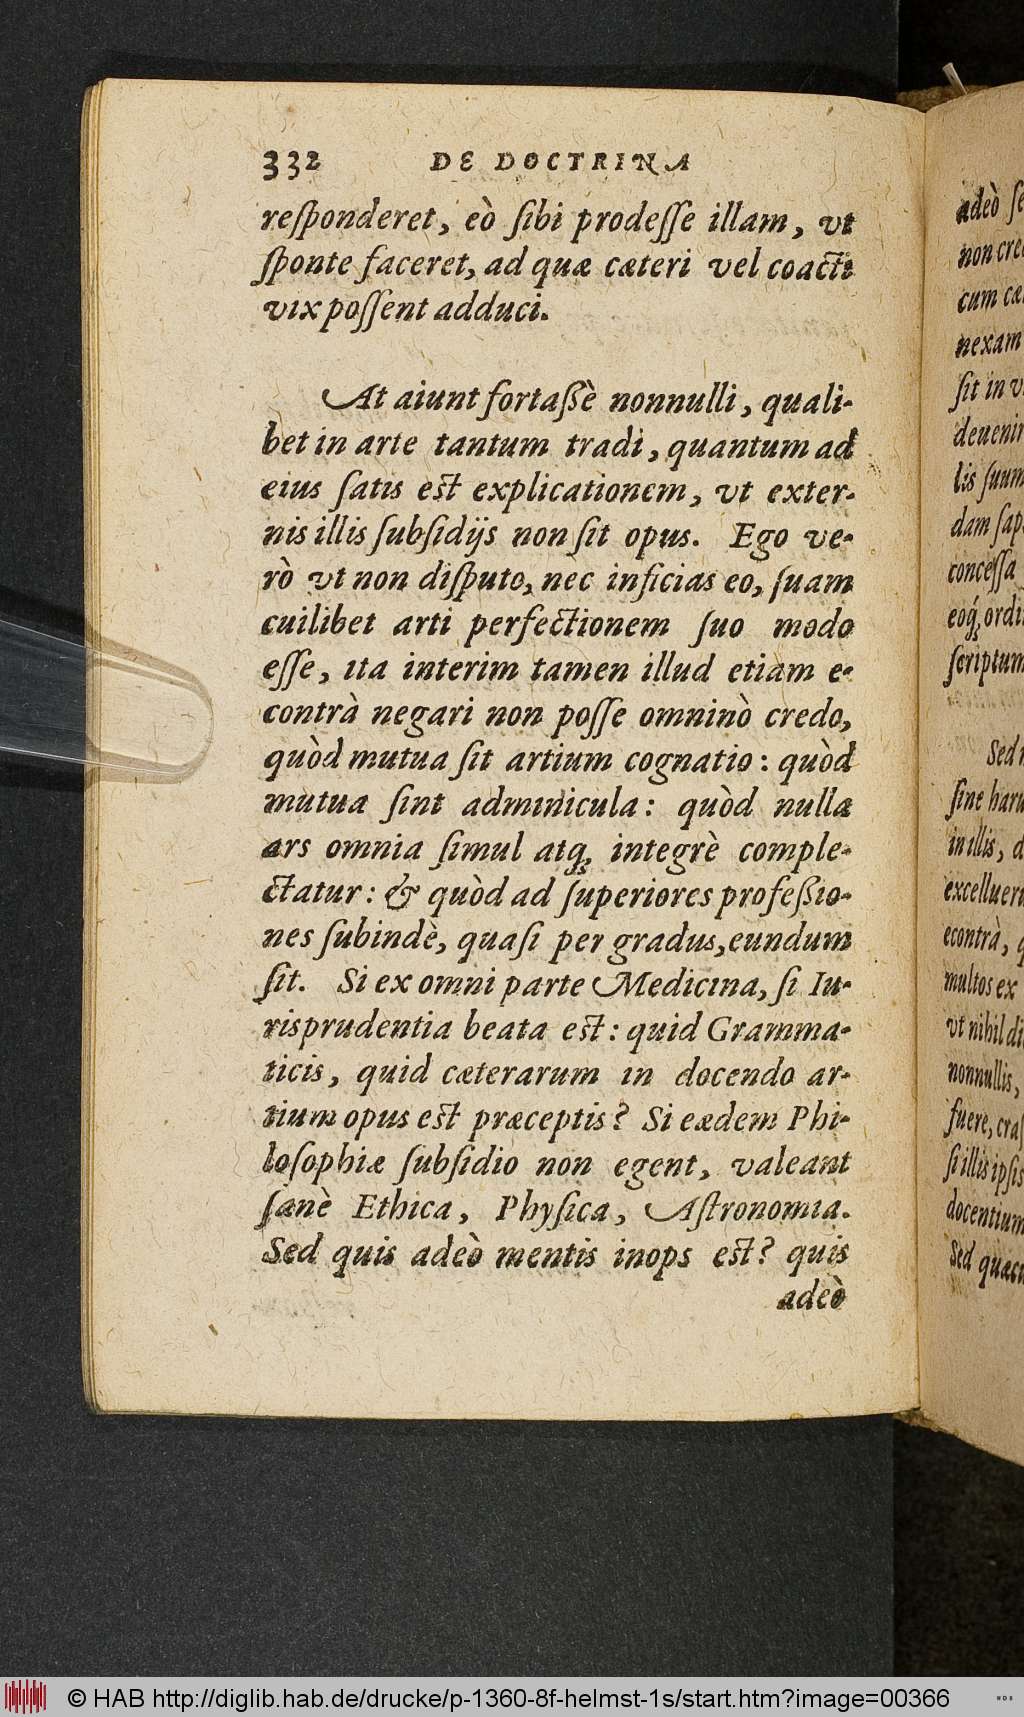 332 DE DOCTRINA
reſponderet, eò ſibi prodeſſe illam, vt
ſponte faceret, ad quæ cæteri vel coacti
vix poſſent adduci.
At aiunt fortaßè nonnulli, quali-
bet in arte tantum tradi, quantum ad
eius ſatis est explicationem, vt exter-
nis illis ſubſidijs non ſit opus. Ego ve-
rò vt non diſputo, nec inficias eo, ſuam
cuilibet arti perfectionem ſuo modo
eſſe, ita interim tamen illud etiam e-
contrà negari non poſſe omninò credo,
quòd mutua ſit artium cognatio: quòd
mutua ſint adminicula: quòd nulla
ars omnia ſimul atq; integrè comple-
ctatur: & quòd ad ſuperiores profeßio-
nes ſubindè, quaſi per gradus, eundum
ſit. Si ex omni parte Medicina, ſi Iu-
risprudentia beata est: quid Gramma-
ticis, quid cæterarum in docendo ar-
tium opus est præceptis? Si eædem Phi-
loſophiæ ſubſidio non egent, valeant
ſanè Ethica, Phyſica, Aſtronomia.
Sed quis adeò mentis inops est? quis
adeò
adeò ſe
non cre
cum cæ
nexam
ſit in v
deuenir
lis ſuum
dam ſap
conceſſa
eoq; ordi
ſcriptum
Sed
ſine haru
in illis, d
excelluer
econtrà, q
multos ex
vt nihil di
nonnullis,
fuere, craſ
ſi illis ipſis
docentium
Sed quæcu
© HAB http://diglib.hab.de/drucke/p-1360-8f-helmst-1s/start.htm?image=00366